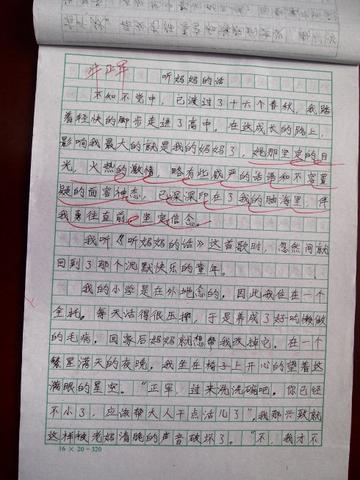 牛正军
听妈妈的话
不知不觉中，已渡过了十六个春秋，我踏
着轻快的脚步走进了高中。在这成长的路上，
影响我最大的就是我的妈妈了，她那坚定的目
光，火热的激情，略有些威严的话语和不容置
疑的面容神态，已深深印在了我的脑海里，伴
我勇往直前，坚定信念。
我听《听妈妈的话》这首歌时，忽然间就
回到了那个沉默快乐的童年。
我的小学是在外地念的，因此我住在一个
全托。每天活得很压抑，于是养成了好吃懒做
的毛病。回家后妈妈就想帮我改掉它。在一个
繁星满天的夜晚。我坐在椅子上开心的望着这
满眼的星空。“正军，过来洗洗碗吧。你已经
不小了，应该帮大人干点活儿了”。我那兴致就
这样被老妈清脆的声音破坏了。“不，我才不
16×20=320